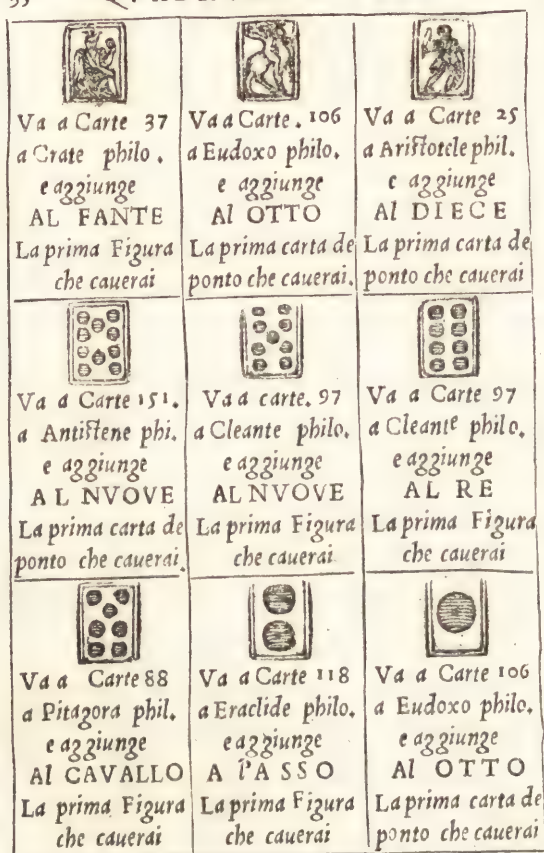 Va a Carte 37
a Crate philo.
e aggiunge
AL FANTE
La prima Figura
che cauerai
Va a Carte. 106
a Eudoxo philo.
e aggiunge
Al OTTO
La prima carta de
ponto che cauerai.
Va a Carte 25
a Ariſtotele phil.
e aggiunge
Al DIECE
La prima carta de
ponto che cauerai
Va a Carte 151.
a Antiſtene phi.
e aggiunge
AL NVOVE
La prima carta de
ponto che cauerai.
Va a carte. 97
a Cleante philo.
e aggiunge
AL NVOVE
La prima Figura
che cauerai
Va a Carte 97
a Cleante philo.
e aggiunge
AL RE
La prima Figura
che cauerai
Va a Carte 88
a Pitagora phil.
e aggiunge
Al CAVALLO
La prima Figura
che cauerai
Va a Carte 118
a Eraclide philo.
e aggiunge
A l'ASSO
La prima Figura
che cauerai
Va a Carte 106
a Eudoxo philo.
e aggiunge
Al OTTO
La prima carta de
ponto che cauerai